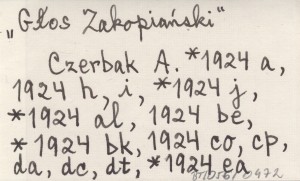 „Głos Zakopiański"
Czerbak A. *1924 a,
1924 h, i, *1924 j,
*1924 al, 1924 be,
*1924 bk, 1924 co, cp,
da, dc, dt, *1924 ea